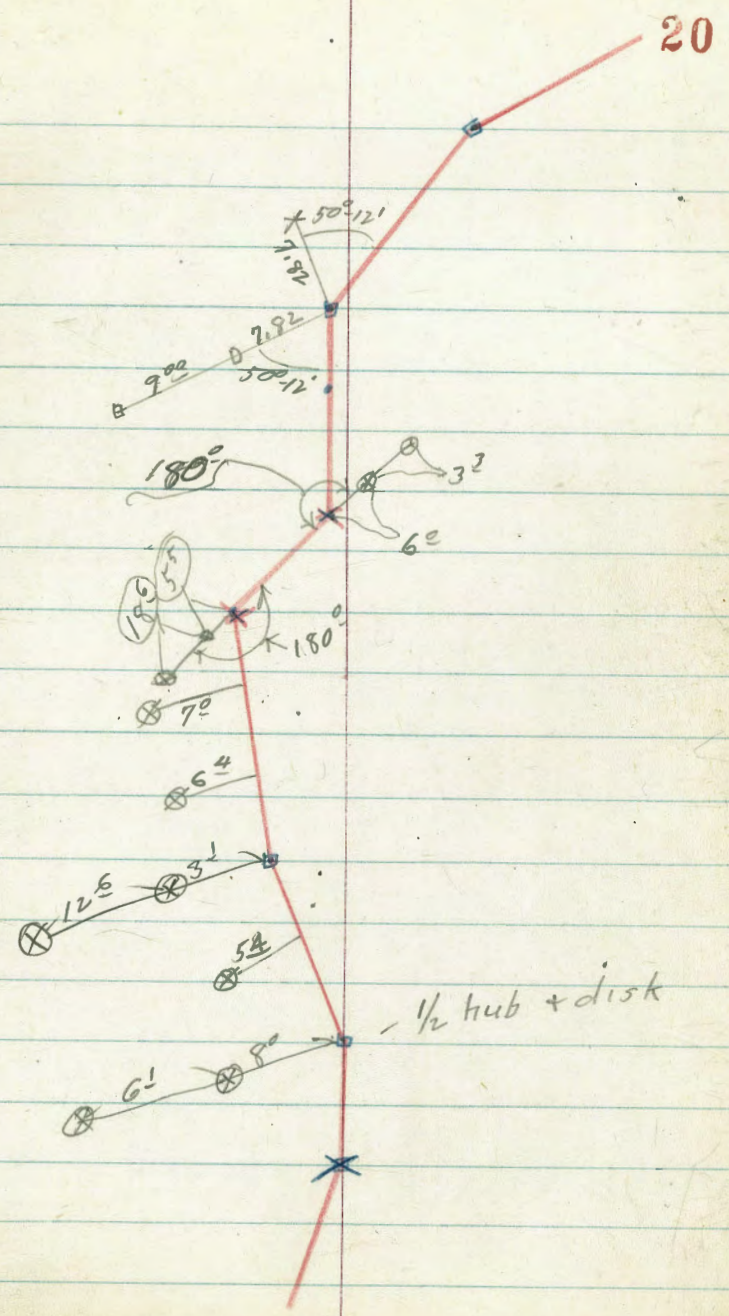 20
50°-12'
7.82
7.82
9 00
50°-12'
180°
3 3
6 0
5 5
18 6
180°
7 0
6 4
3 1
12 6
5 4
- 1/2 hub + disk
8 0
6 1